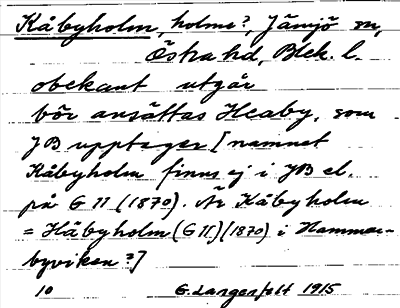 Kåbyholm, holme?, Jämjö sn,
Östra hd, Blek. l.
obekant utgår
bör ansättas Heaby, som
JB upptager [namnet
Kåbyholm finns ej i JB el.
på G 11 (1870). Är Kåbyholm
= Håbyholm (G 11.) (1870) i Hammar-
byviken?]
10 G. Langenfelt 1915